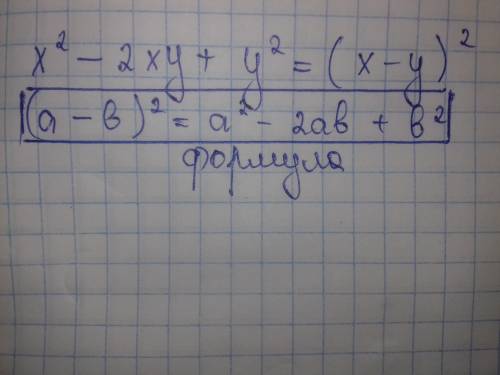 x² - 2xy + y² = (x - y)²
(a - в)² = a² - 2aв + в²
формула